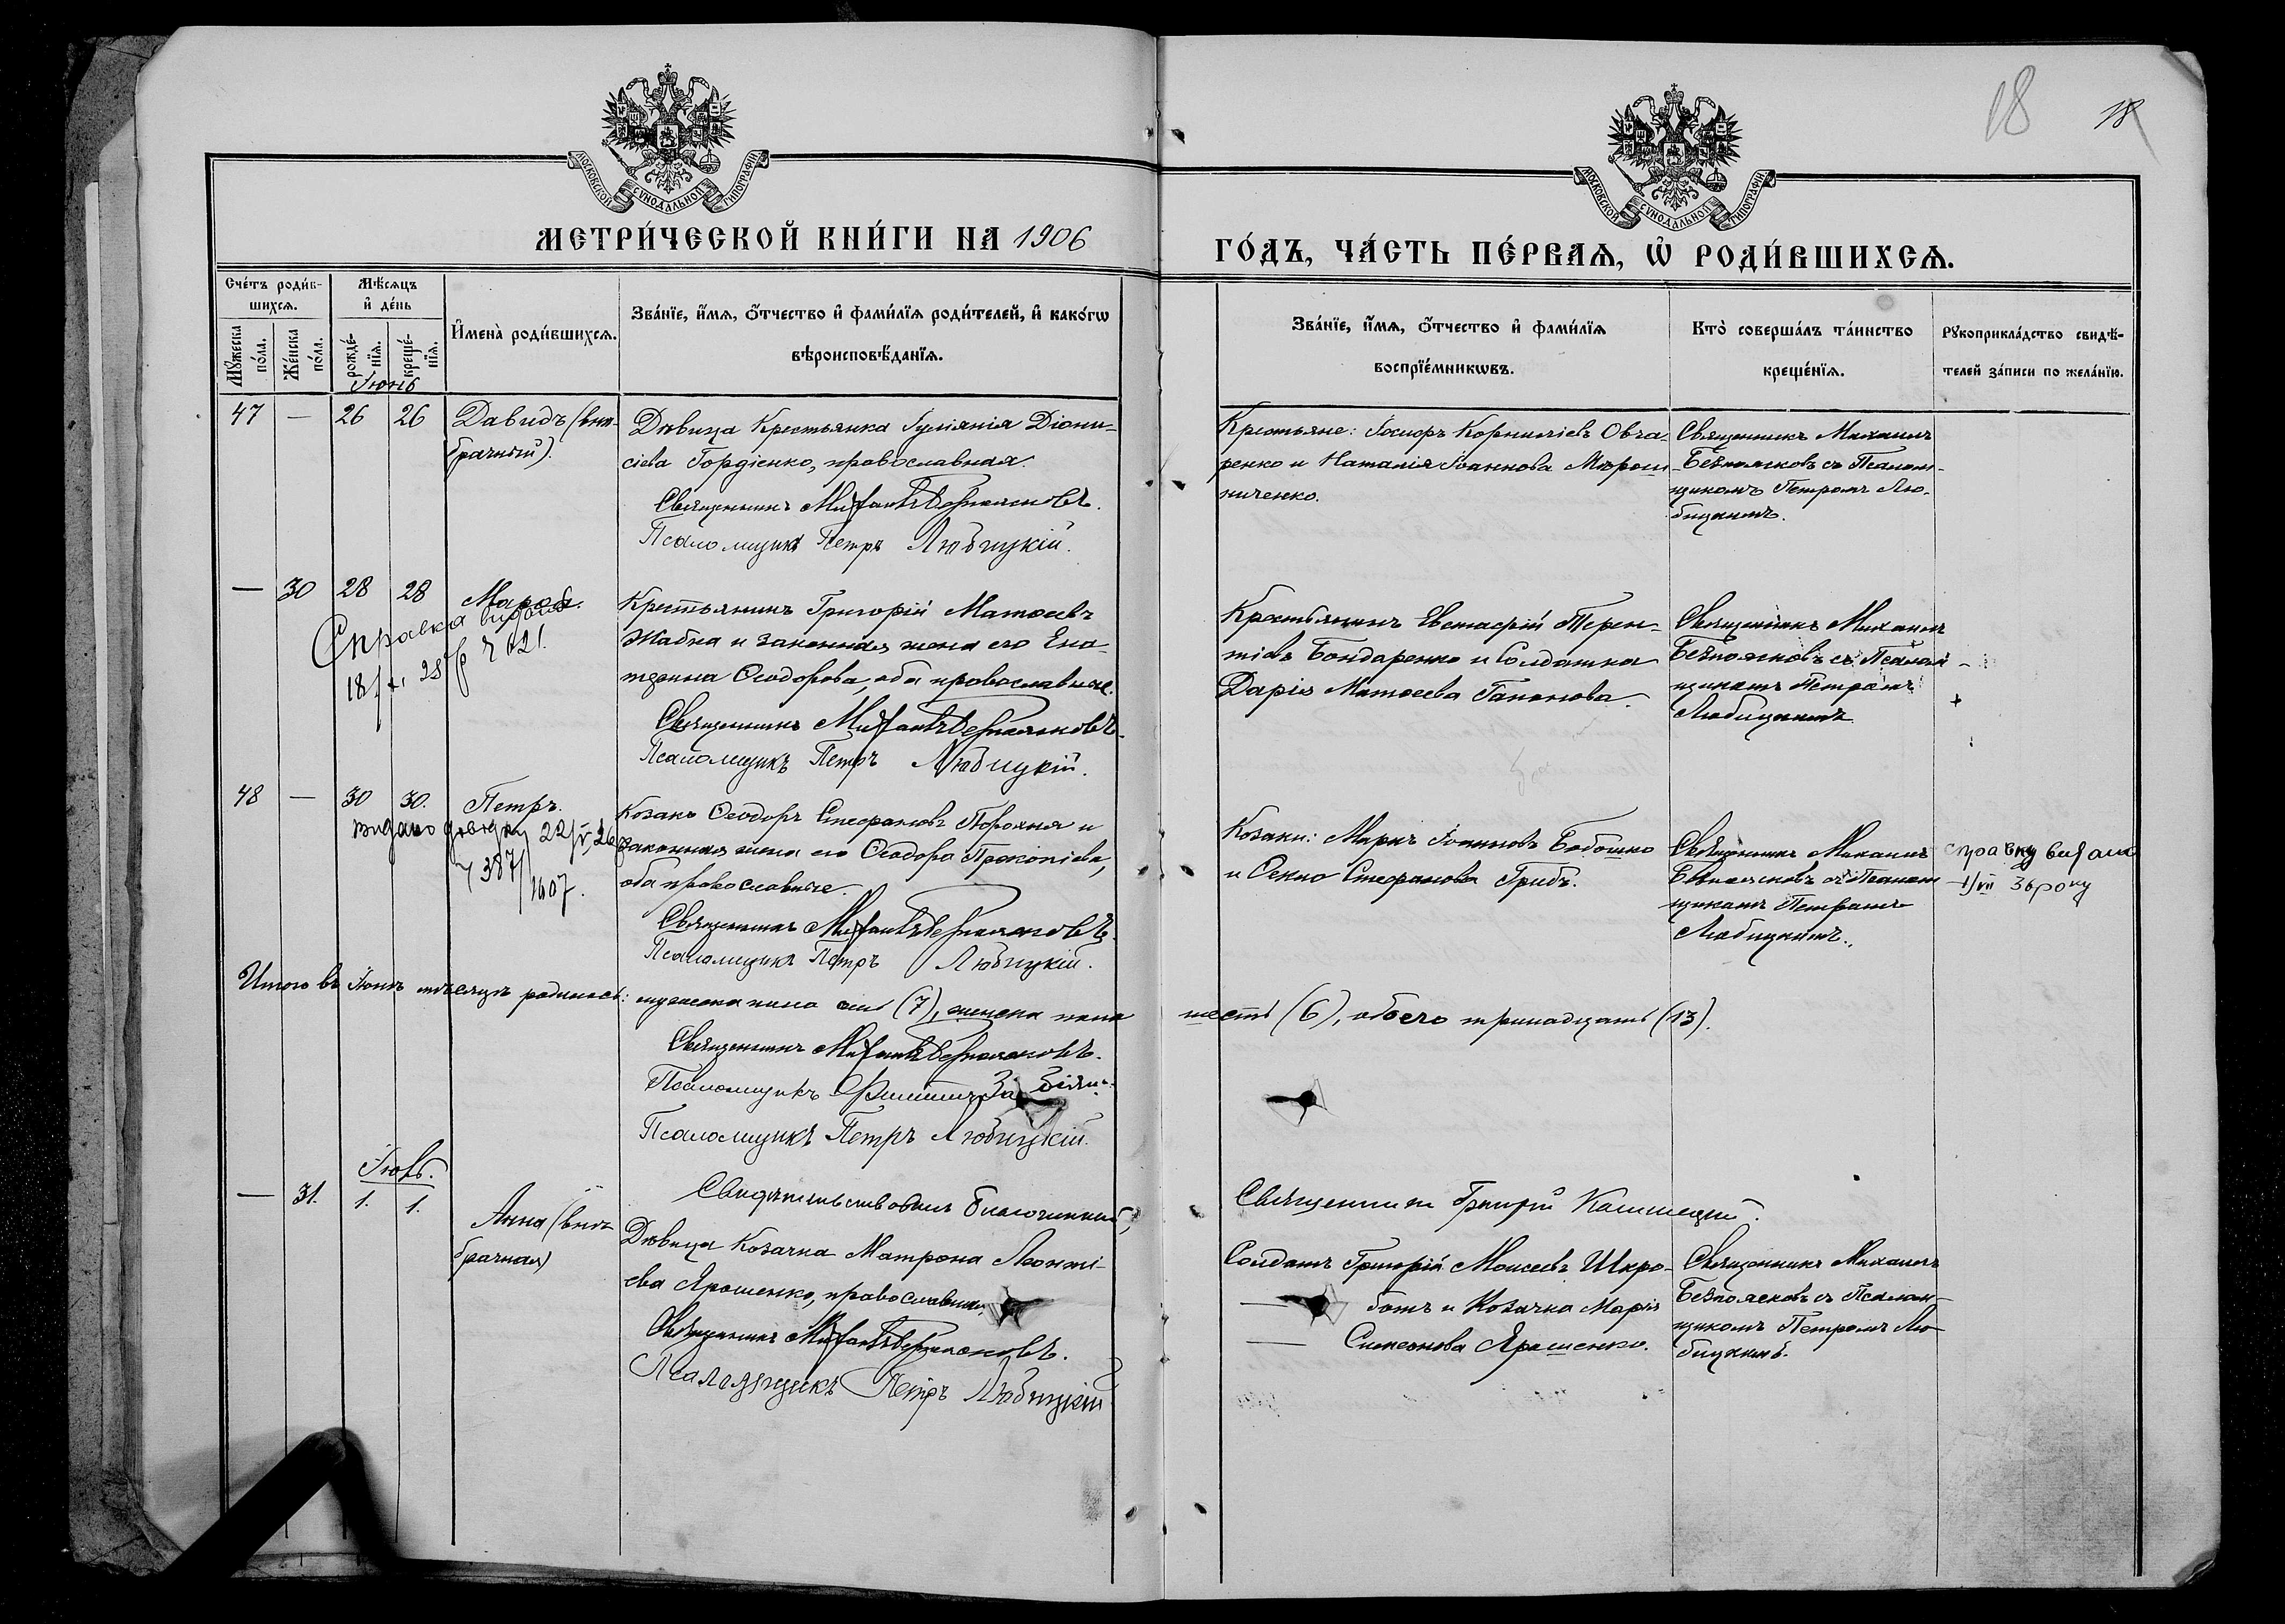 18
18
МОСКОВСКОЙ СѴНОДАЛЬНОЙ ТИПОГРАФІИ
МОСКОВСКОЙ СѴНОДАЛЬНОЙ ТИПОГРАФІИ
МЕТРИ́ЧЕСКОЙ КНИ́ГИ НА 1906
ГО́ДЪ, ЧА́СТЬ ПЕ́РВАѦ, Ѡ҆ РОДИ́ВШИХСѦ.
Сче́тъ роди́в-
шихсѧ.
Мꙋ́жеска
по́ла.
Же́нска
по́ла.
Мѣ́сѧцъ
и҆ де́нь
рожде́-
нїѧ.
креще́-
нїѧ.
И҆мена̀ роди́вшихсѧ.
Зва́нїе, и҆́мѧ, ѻ҆́тчество и҆ фами́лїѧ роди́телей, и҆ како́гѡ
вѣроисповѣ́данїѧ.
Зва́нїе, и҆́мѧ, ѻ҆́тчество и҆ фами́лїѧ
воспрїе́мникѡвъ.
Кто̀ соверша́лъ та́инство
креще́нїѧ.
Рꙋкоприкла́дство свидѣ́-
телей за́писи по жела́нїю.
Іюнь
47 — 26 26 Давидъ (внѣ-
брачный).
Дѣвица Крестьянка Іуліянія Діони-
сіева Гордіенко, православная.
Священникъ Михаилъ Безпоясковъ.
Псаломщикъ Петръ Любицкій.
Крестьяне: Іосифъ Корниліевъ Овча-
ренко и Наталія Іоаннова Мѣрош-
ниченко.
Священникъ Михаилъ
Безпоясковъ съ Псалом-
щикомъ Петромъ Лю-
бицкимъ.
— 30 28 28
Справка видана
18 28
Крестьянинъ Григорій Матѳеевъ
Жабка и законная жена его Ека-
терина Ѳеодорова, оба православные.
Священникъ Михаилъ Безпоясковъ.
Псаломщикъ Петръ Любицкій.
Крестьянинъ Евстафій Терен-
тіевъ Бондаренко и Солдатка
Дарія Матѳеева Гапонова.
Священникъ Михаилъ
Безпоясковъ съ Псалом-
щикомъ Петромъ
Любицкимъ
48 — 30 30. Петръ.
видано довідку 22/V 26
ч 387/1607.
Козакъ Ѳеодоръ Стефановъ Порохня и
законная жена его Ѳеодора Прокопіева,
оба православные.
Священникъ Михаилъ Безпоясковъ.
Псаломщикъ Петръ Любицкій.
Козаки: Маркъ Іоанновъ Бабошко
и Стефанова Грибъ.
Священникъ Михаилъ
Безпоясковъ съ Псалом-
щикомъ Петромъ
Любицкимъ.
справку видали
1/VII 36 року
Итого въ Іюнѣ мѣсяцѣ родилось: мужеска пола семь (7), женска пола шесть (6), обоего тринадцать (13).
Священникъ Михаилъ Безпоясковъ.
Псаломщикъ Филиппъ
Псаломщикъ Петръ Любицкій.
Свидѣтельствовалъ благочинный, Священникъ Григорій
Іюль.
— 31. 1. 1. Анна (внѣ-
брачная)
Дѣвица Козачка Матрона Леонті-
ева Ярошенко, православная.
Священникъ Михаилъ Безпоясковъ.
Псаломщикъ Петръ Любицкій
Солдатъ Григорій Моисеевъ Шкро-
— ботъ и Козачка Марія
— Симеонова Ярошенко.
Священникъ Михаилъ
Безпоясковъ съ Псалом-
щикомъ Петромъ Лю-
бицкимъ.